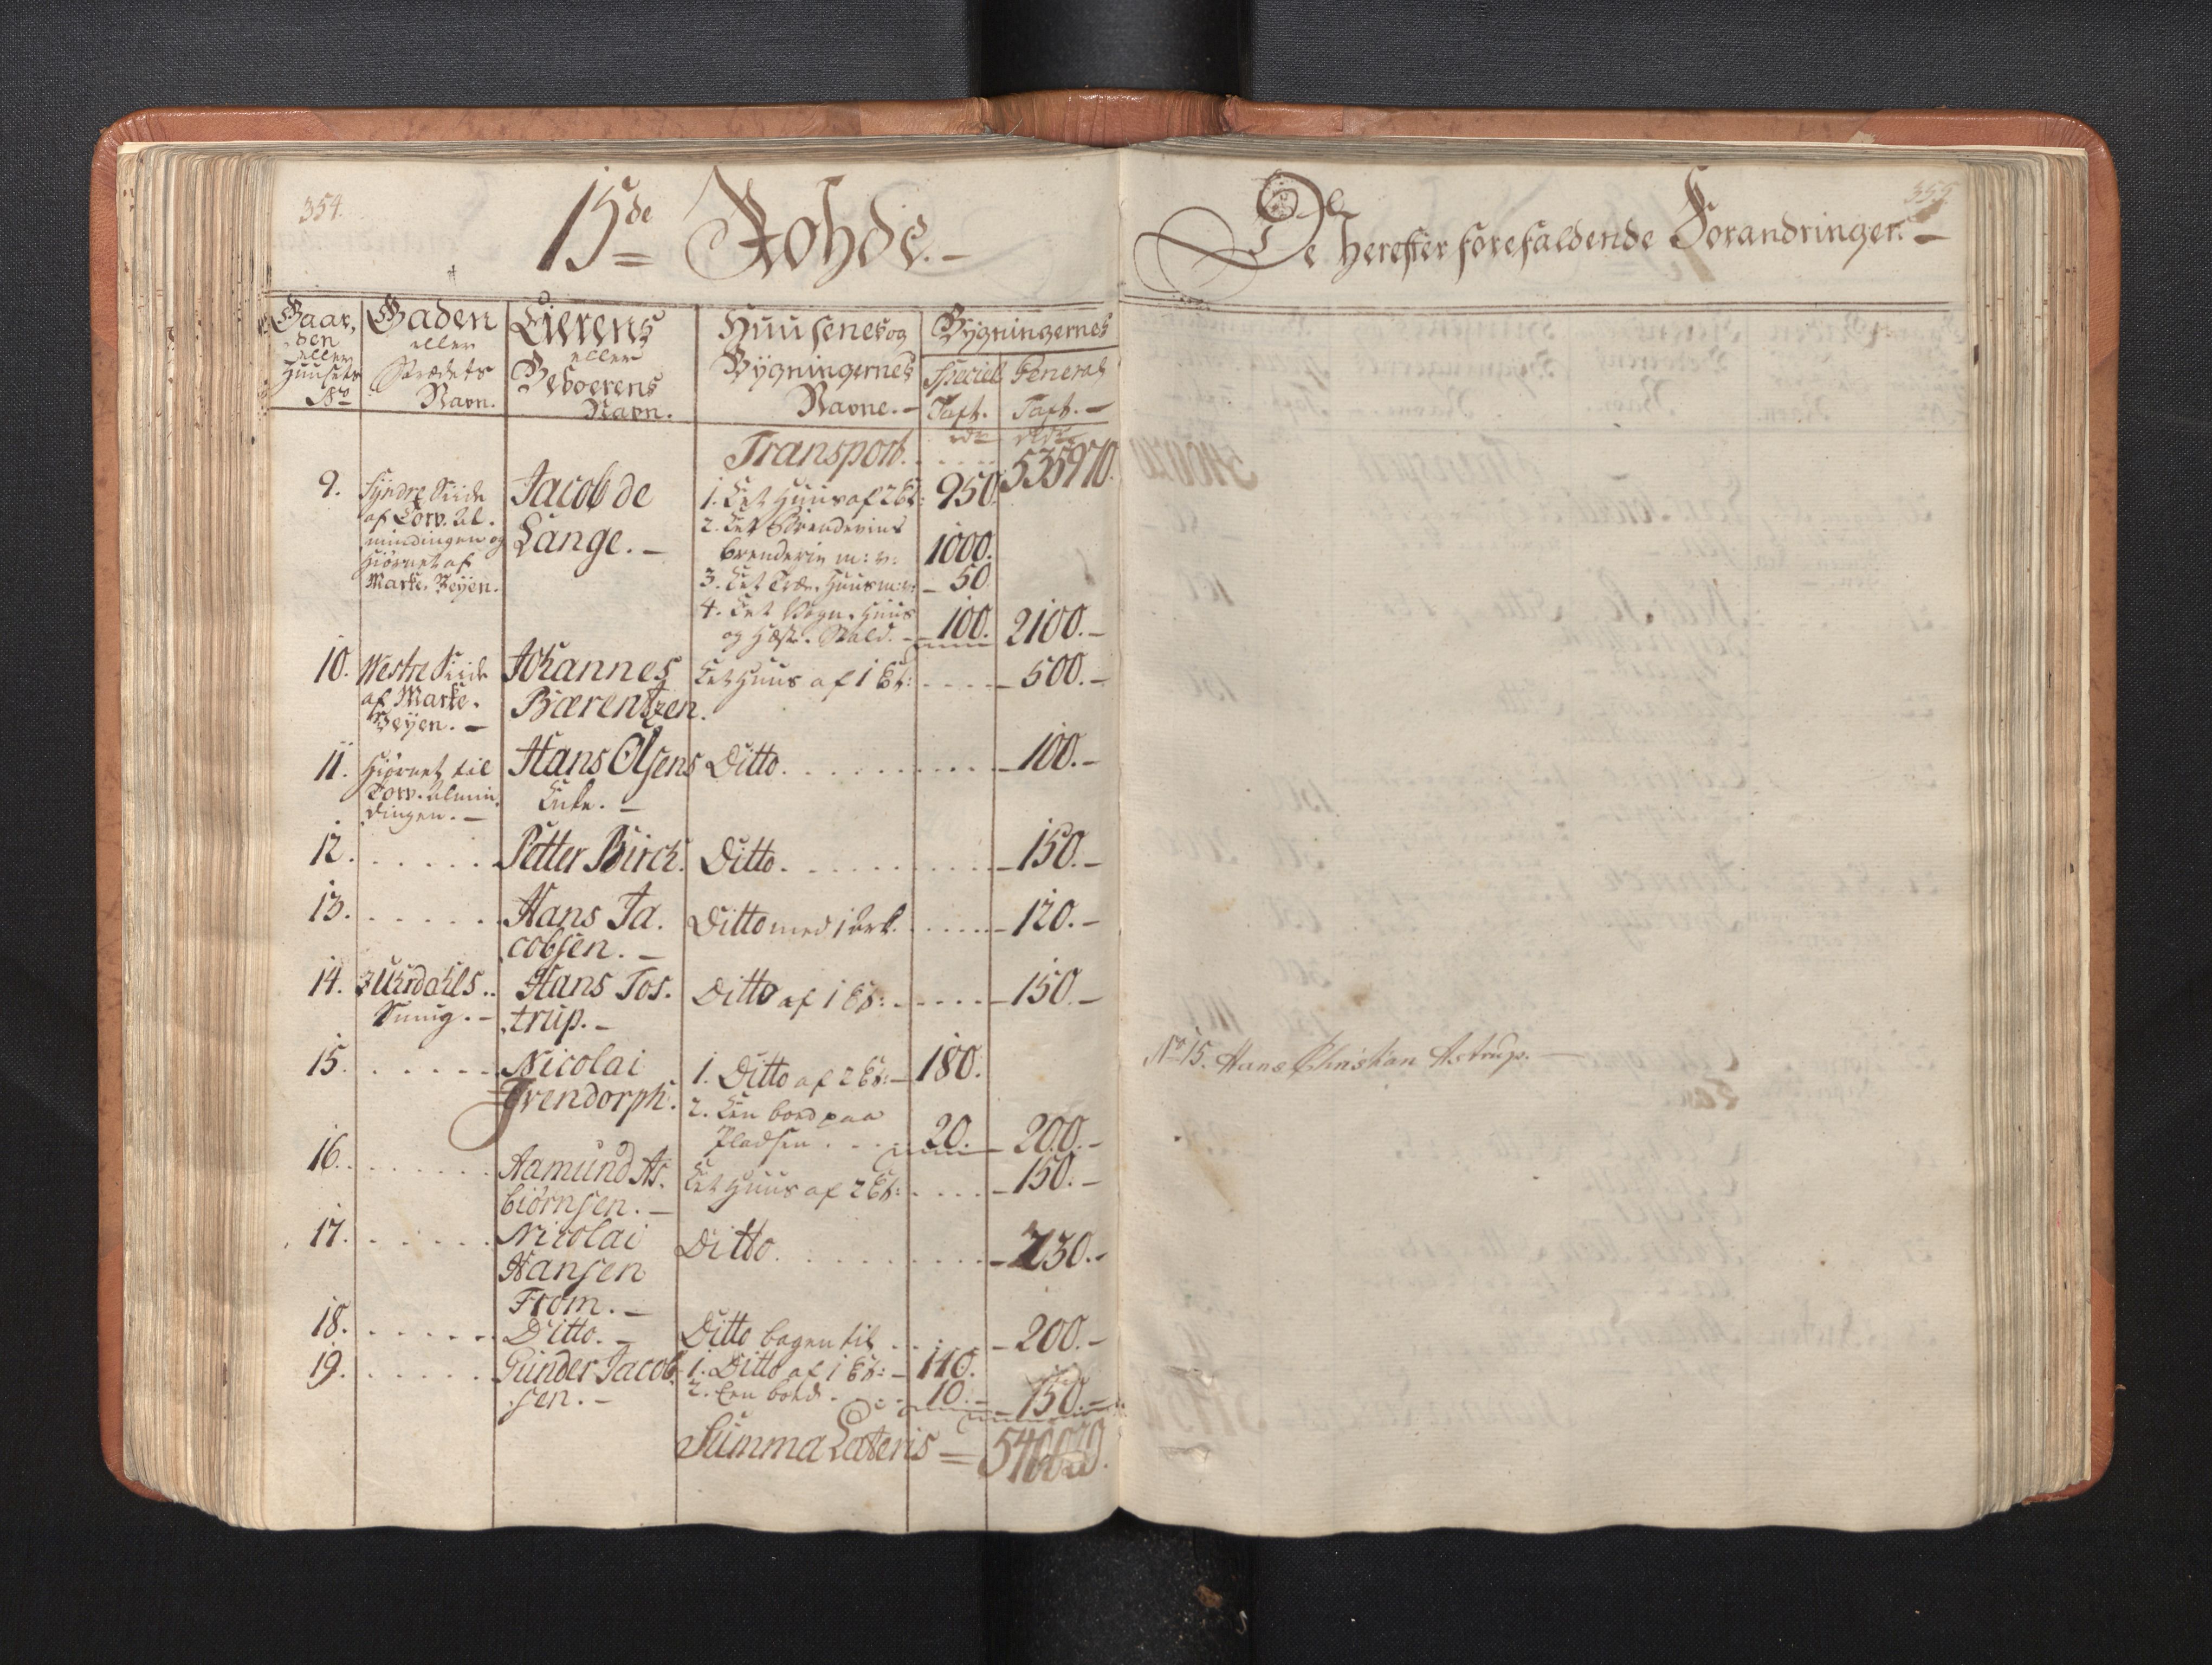 354.
15de Rohde.
Gaar,
den
eller
Huusets
No
Gaden
eller
Strædets
Navn.
Eierens
eller
Beboerens
Navn.
Huusenes og
Bygningernes
Navne.
Bygningernes
Speciel
Taxt.
General
Taxt.
rdr
rdr
Transport. 535970.
9. Syndre Siide
af Torv. Al.
mindingen og
Hiørnet af
Marke. Veyen.
Jacob de
Lange.
1. Eet Huus af 2 Et: 950.
2. Et Brendeviins
brenderie m: v: 1000.
3. Eet Træe. Huus m: v: 50.
4. Eet Vogn. Huus
og Hæste. Stald. 100. 2100.
10. Westre Siide
af Marke.
Veyen.
Johannes
Bærentzen.
Eet Huus af 1 Et: 500.
11. Hiørnet til
Torv. Almin,
dingen.
Hans Olsens
Enke.
Ditto. 100.
12. Petter Birch. Ditto. 150.
13. Hans Ja.
cobsen.
Ditto med 1 120.
14. Smug.
Hans Tos.
trup.
Ditto af 1 Et: 150.
15. Nicolai
Frendorph.
1. Ditto af 2 Et: 180.
2. Een boed paa
Pladsen. 20. 200.
16. Aamund As.
biörnsen.
Eet Huus af 2 Et: 150.
17. Nicolai
Hansen
From.
Ditto. 230.
18. Ditto. Ditto bagen til 200.
19. Gunder Jacob.
sen.
1. Ditto af 1 Et: 140.
2. Een boed. 10. 150.
Summa Lateris = 540020.
355
De herefter forefaldende Forandringer.
No 15. Hans Christian Astrup.